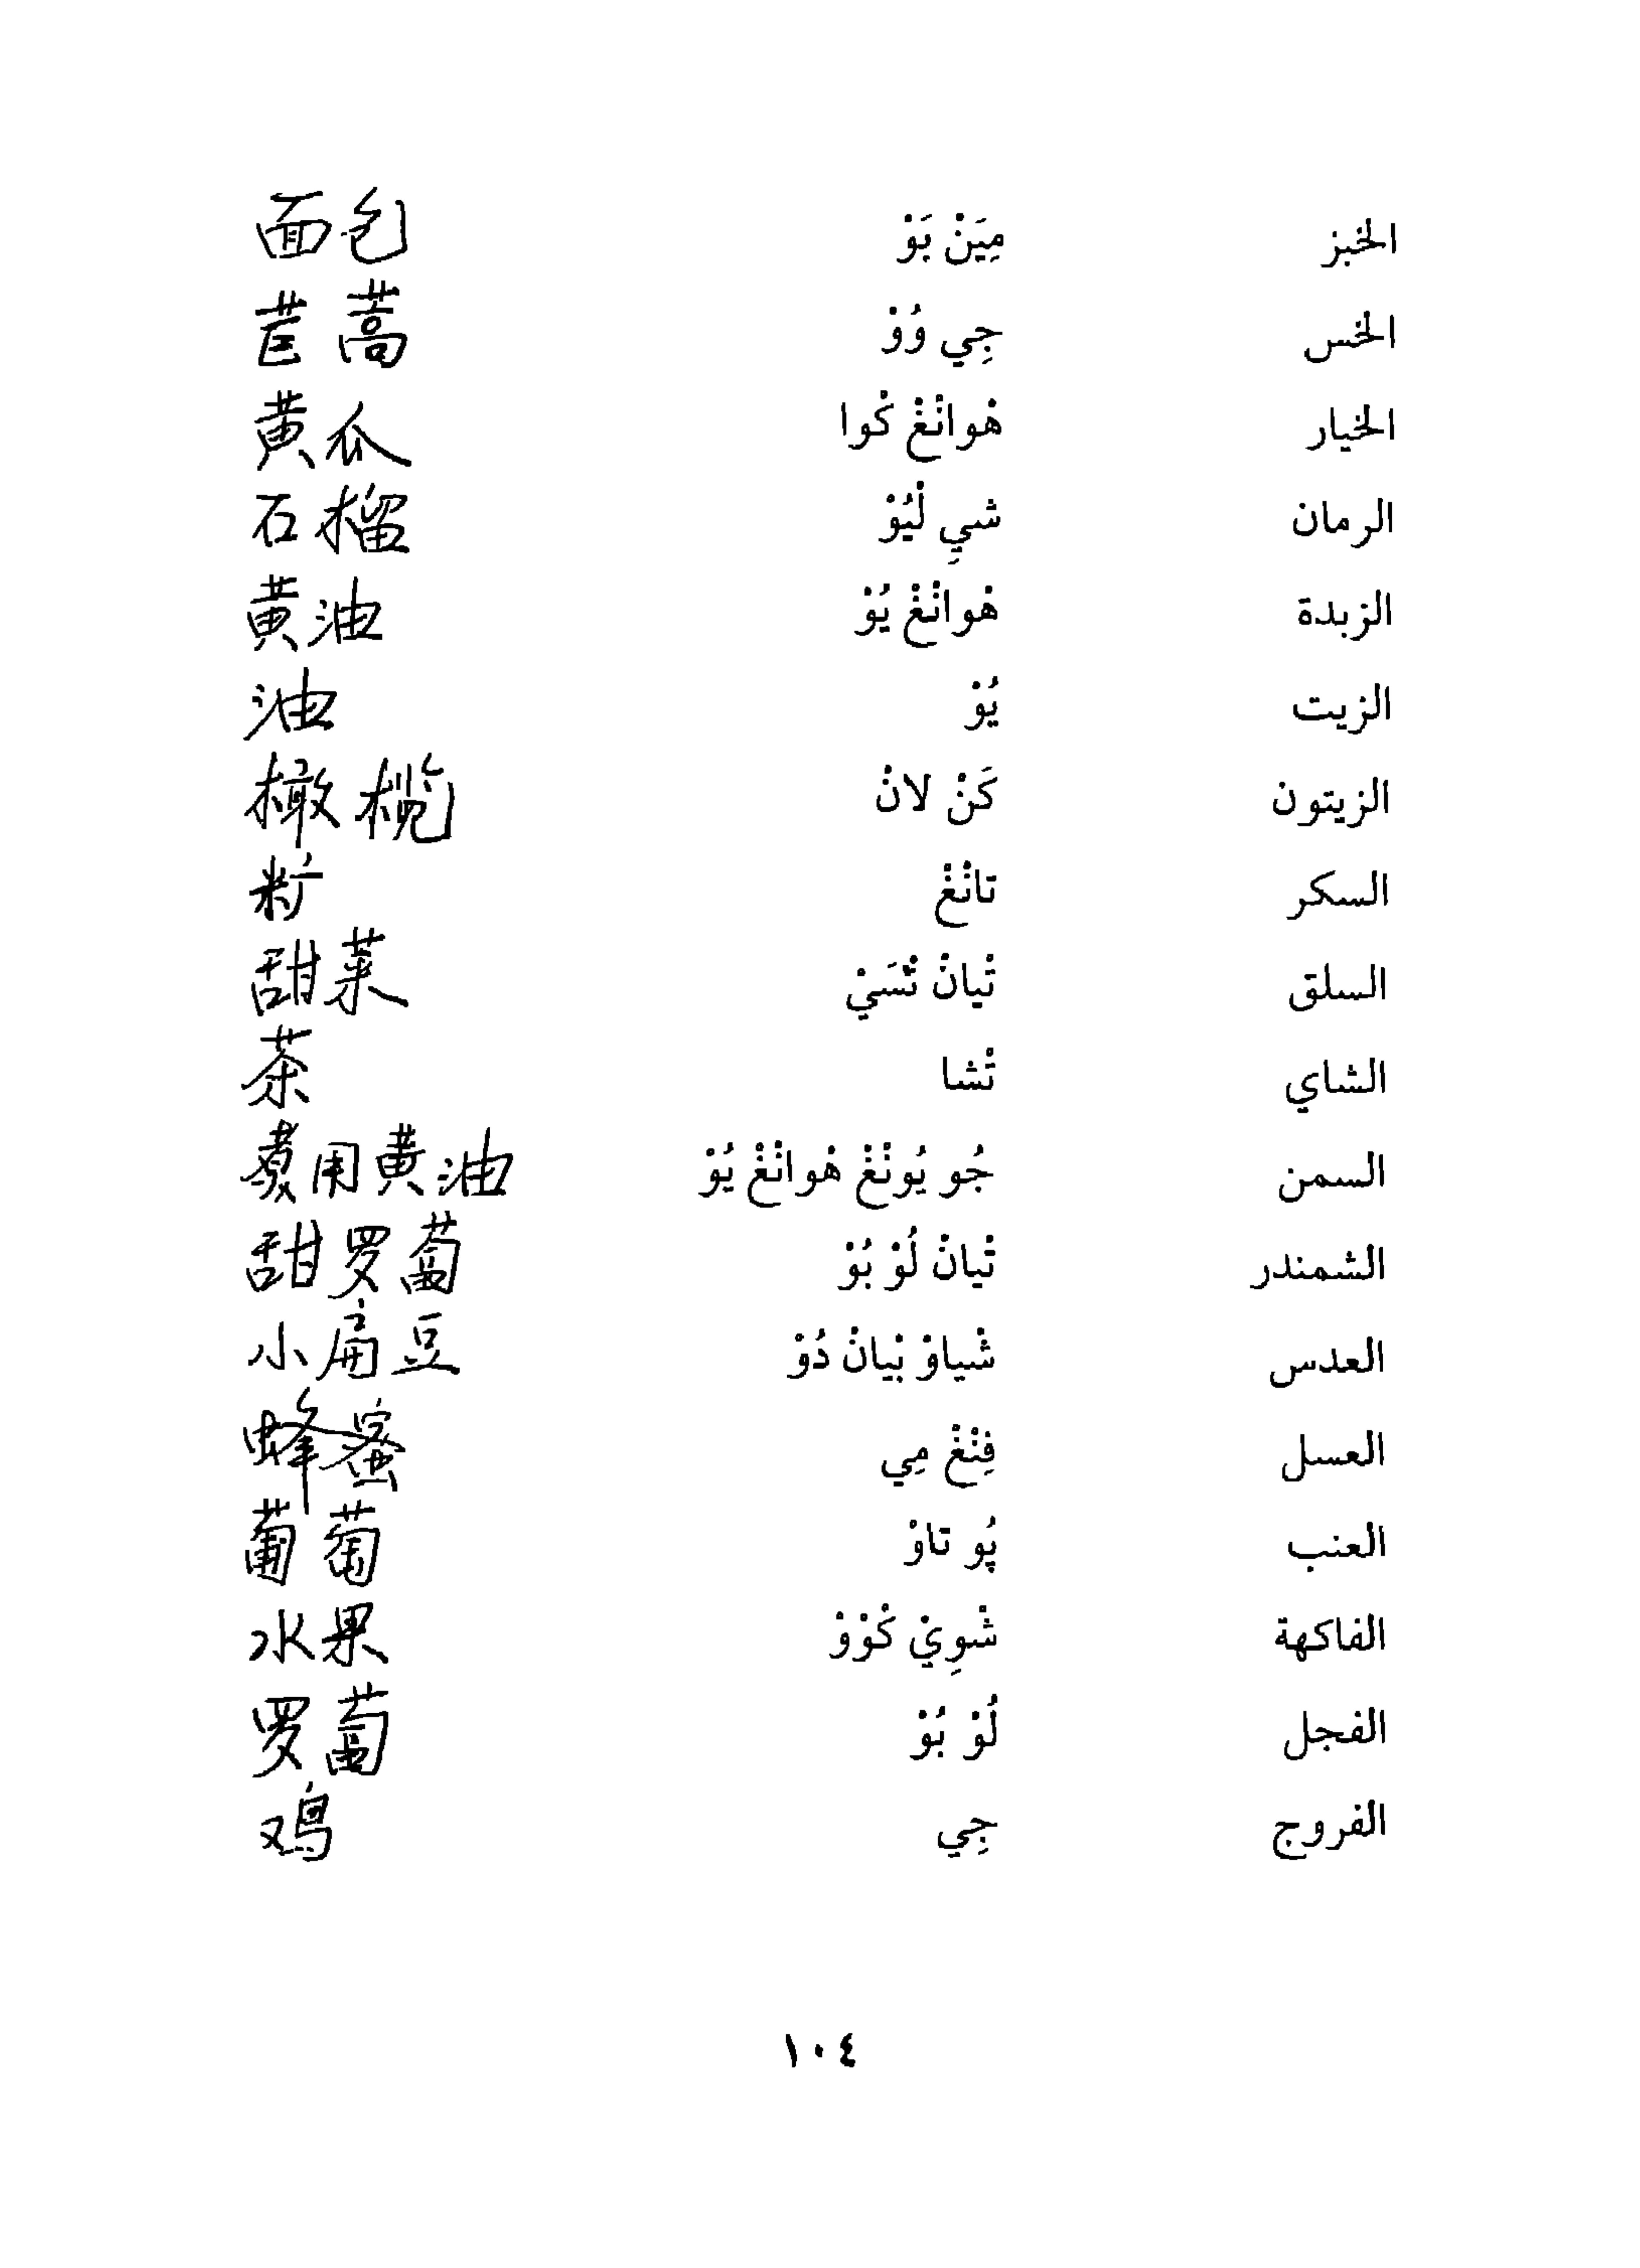 الخبز مِيَنْ بَوْ 面包
الخس جِي وُوْ
الخيار هْوانْغْ كْوا 黄瓜
الرمان شيِ لْيُوْ 石榴
الزبدة هْوانْغْ يُوْ 黄油
الزيت يُوْ 油
الزيتون كَنْ لانْ 橄榄
السكر تانْغْ
السلق تْيانْ تْسَيْ 甜菜
الشاي تْشا 茶
السمن جُو يُونْغْ هْوانْغْ يُوْ 煮用黄油
الشمندر تْيانْ لُوْ بُوْ 甜罗蔔
العدس شْياوْ بْيانْ دُوْ 小扁豆
العسل فِنْغْ مِي 蜂蜜
العنب پُو تاوْ 葡萄
الفاكهة شْوِيْ كْوْوْ 水果
الفجل لُوْ بُوْ 罗蔔
الفروج جِي 鸡
١٠٤